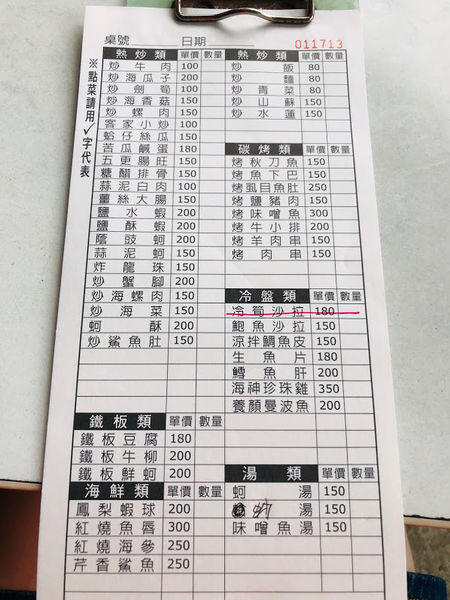 桌號 日期 011713
※點菜請用✓字代表
熱炒類 單價 數量
炒牛肉 100
炒海瓜子 200
炒劍筍 100
炒海香菇 150
炒螺肉 150
客家小炒 100
蛤仔絲瓜 150
苦瓜鹹蛋 180
五更腸旺 150
糖醋排骨 150
蒜泥白肉 100
薑絲大腸 150
鹽水蝦 200
鹽酥蝦 200
蔭豉蚵 200
蒜泥蚵 150
炸龍珠 150
炒蟹腳 200
炒海螺肉 150
炒海菜 150
蚵酥 200
炒鯊魚肚 150
鐵板類 單價 數量
鐵板豆腐 180
鐵板牛柳 200
鐵板鮮蚵 200
海鮮類 單價 數量
鳳梨蝦球 200
紅燒魚唇 300
紅燒海參 250
芹香鯊魚 250
熱炒類 單價 數量
炒飯 80
炒麵 80
炒青菜 80
炒山蘇 150
炒水蓮 150
碳烤類 單價 數量
烤秋刀魚 150
烤魚下巴 150
烤虱目魚肚 250
烤鹽豬肉 150
烤味噌魚 300
烤牛小排 200
烤羊肉串 150
烤肉串 150
冷盤類 單價 數量
冷筍沙拉 180
鮑魚沙拉 150
涼拌鯛魚皮 150
生魚片 180
鱈魚肝 200
海神珍珠雞 350
養顏曼波魚 200
湯類 單價 數量
蚵湯 150
湯 150
味噌魚湯 150